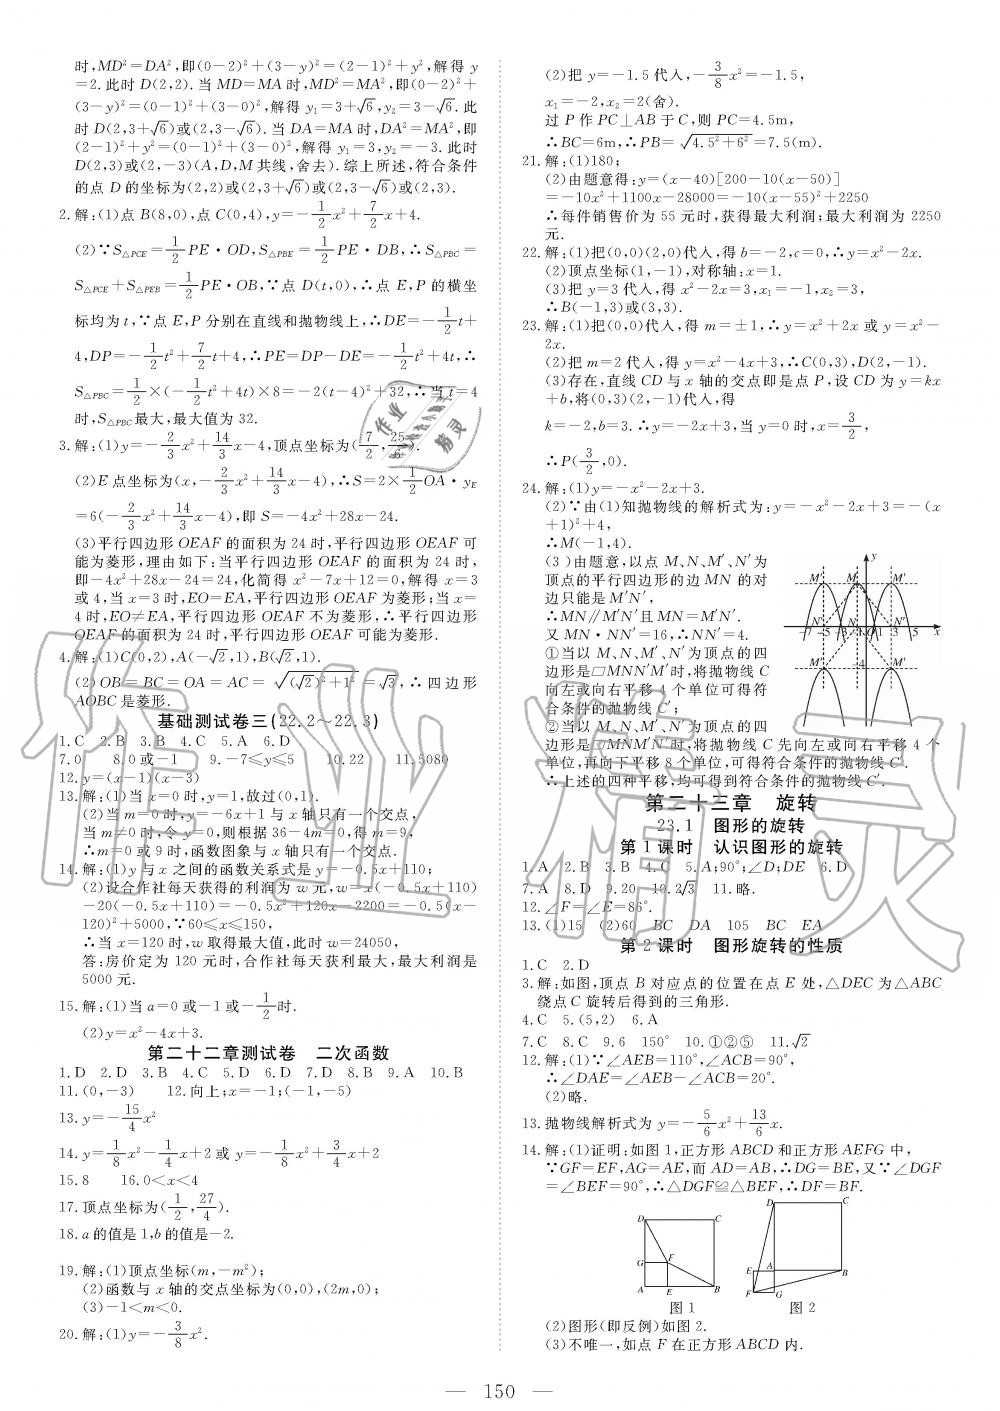 时,MD²=DA²,即(0-2)²+(3-y)²=(2-1)²+y²,解得 y
=2.此时 D(2,2).当 MD=MA时,MD²=MA²,即(0-2)²+
(3-y)²=(0-1)²+(3-0)²,解得 y₁=3+√6,y₂=3-√6.此
时 D(2,3+√6)或(2,3-√6).当 DA=MA 时,DA²=MA²,即
(2-1)²+y²=(0-1)²+(3-0)²,解得 y₁=3,y₂=-3.此时
D(2,3)或(2,-3)(A,D,M 共线,舍去).综上所述,符合条件
的点 D 的坐标为(2,2)或(2,3+√6)或(2,3-√6)或(2,3).
2.解:(1)点 B(8,0),点 C(0,4),y=-1/2x²+7/2x+4.
(2)∵S△PCE=1/2PE·OD,S△PBE=1/2PE·DB,∴S△PBC=
S△PCE+S△PEB=1/2PE·OB,∵点 D(t,0),∴点 E,P 的横坐
标均为 t,∵点 E,P 分别在直线和抛物线上,∴DE=-1/2t+
4,DP=-1/2t²+7/2t+4,∴PE=DP-DE=-1/2t²+4t,∴
S△PBC=1/2×(-1/2t²+4t)×8=-2(t-4)²+32,∴当 t=4
时,S△PBC最大,最大值为 32.
3.解:(1)y=-2/3x²+14/3x-4,顶点坐标为(7/2,25/6).
(2)E 点坐标为(x,-2/3x²+14/3x-4),∴S=2×1/2OA·yE
=6(-2/3x²+14/3x-4),即 S=-4x²+28x-24.
(3)平行四边形 OEAF 的面积为 24 时,平行四边形 OEAF 可
能为菱形,理由如下:当平行四边形 OEAF 的面积为 24 时,
即-4x²+28x-24=24,化简得 x²-7x+12=0,解得 x=3
或 4,当 x=3 时,EO=EA,平行四边形 OEAF 为菱形;当 x=
4 时,EO≠EA,平行四边形 OEAF 不为菱形,∴平行四边形
OEAF 的面积为 24 时,平行四边形 OEAF 可能为菱形.
4.解:(1)C(0,2),A(-√2,1),B(√2,1).
(2)OB=BC=OA=AC=√((√2)²+1²)=√3,∴四边形
AOBC 是菱形.
基础测试卷三(22.2~22.3)
1.C 2.B 3.B 4.C 5.A 6.D
7.0 8.0或-1 9.-7≤y≤5 10.22 11.5080
12.y=-(x-1)(x-3)
13.解:(1)当 x=0 时,y=1,故过(0,1).
(2)当 m=0时,y=-6x+1与 x轴只有一个交点,
当 m≠0时,令 y=0,则根据 36-4m=0,得 m=9,
∴m=0 或 9 时,函数图象与 x 轴只有一个交点.
14.解:(1)y 与 x 之间的函数关系式是 y=-0.5x+110;
(2)设合作社每天获得的利润为 w 元,w=(-0.5x+110)
-20(-0.5x+110)=-0.5x²+120x-2200=-0.5(x-
120)²+5000,∵60≤x≤150,
∴当 x=120 时,w 取得最大值,此时 w=24050,
答:房价定为 120 元时,合作社每天获利最大,最大利润是
5000 元.
15.解:(1)当 a=0或-1或-1/2时.
(2)y=x²-4x+3.
第二十二章测试卷 二次函数
1.D 2.D 3.B 4.C 5.D 6.D 7.D 8.B 9.A 10.B
11.(0,-3) 12.向上;x=-1;(-1,-5)
13.y=-15/4x²
14.y=1/8x²-1/4x+2或 y=-1/8x²+3/4x+2
15.8 16.0<x<4
17.顶点坐标为(1/2,27/4).
18.a 的值是 1,b 的值是-2.
19.解:(1)顶点坐标(m,-m²);
(2)函数与 x 轴的交点坐标为(0,0),(2m,0);
(3)-1<m<0.
20.解:(1)y=-3/8x².
(2)把 y=-1.5 代入,-3/8x²=-1.5,
x₁=-2,x₂=2(舍).
过 P 作 PC⊥AB 于 C,则 PC=4.5m,
∴BC=6m,∴PB=√(4.5²+6²)=7.5(m).
21.解:(1)180;
(2)由题意得:y=(x-40)[200-10(x-50)]
=-10x²+1100x-28000=-10(x-55)²+2250
∴每件销售价为 55 元时,获得最大利润;最大利润为 2250
元.
22.解:(1)把(0,0)(2,0)代入,得 b=-2,c=0,∴y=x²-2x.
(2)顶点坐标(1,-1),对称轴:x=1.
(3)把 y=3 代入,得 x²-2x=3,x₁=-1,x₂=3,
∴B(-1,3)或(3,3).
23.解:(1)把(0,0)代入,得 m=±1,∴y=x²+2x 或 y=x²-
2x.
(2)把 m=2 代入,得 y=x²-4x+3,∴C(0,3),D(2,-1).
(3)存在,直线 CD 与 x 轴的交点即是点 P,设 CD 为 y=kx
+b,将(0,3)(2,-1)代入,得
k=-2,b=3.∴y=-2x+3,当 y=0 时,x=3/2,
∴P(3/2,0).
24.解:(1)y=-x²-2x+3.
(2)∵由(1)知抛物线的解析式为:y=-x²-2x+3=-(x
+1)²+4,
∴M(-1,4).
(3)由题意,以点 M、N、M′、N′为
顶点的平行四边形的边 MN 的对
边只能是 M′N′,
∴MN∥M′N′且 MN=M′N′.
又 MN·NN′=16,∴NN′=4.
①当以 M、N、M′、N′为顶点的四
边形是▱MNN′M′时,将抛物线 C
向左或向右平移 4 个单位可得符
合条件的抛物线 C′;
②当以 M、N、M′、N′为顶点的四
边形是▱MNM′N′时,将抛物线 C 先向左或向右平移 4 个
单位,再向下平移 8 个单位,可得符合条件的抛物线 C′.
∴上述的四种平移,均可得到符合条件的抛物线 C′.
第二十三章 旋转
23.1 图形的旋转
第 1 课时 认识图形的旋转
1.A 2.B 3.B 4.C 5.A;90°;∠D;DE 6.D
7.A 8.D 9.20 10.2√3 11.略.
12.∠F=∠E=86°.
13.(1)15 (2)60 BC DA 105 BC EA
第 2 课时 图形旋转的性质
1.C 2.D
3.解:如图,顶点 B 对应点的位置在点 E 处,△DEC 为△ABC
绕点 C 旋转后得到的三角形.
4.C 5.(5,2) 6.A
7.C 8.C 9.6 150° 10.①②⑤ 11.√2
12.解:(1)∵∠AEB=110°,∠ACB=90°,
∴∠DAE=∠AEB-∠ACB=20°.
(2)略.
13.抛物线解析式为 y=-5/6x²+13/6x.
14.解:(1)证明:如图 1,正方形 ABCD 和正方形 AEFG 中,
∵GF=EF,AG=AE,而 AD=AB,∴DG=BE,又∵∠DGF
=∠BEF=90°,∴△DGF≌△BEF,∴DF=BF.
图 1 图 2
(2)图形(即反例)如图 2.
(3)不唯一,如点 F 在正方形 ABCD 内.
— 150 —
作业精灵